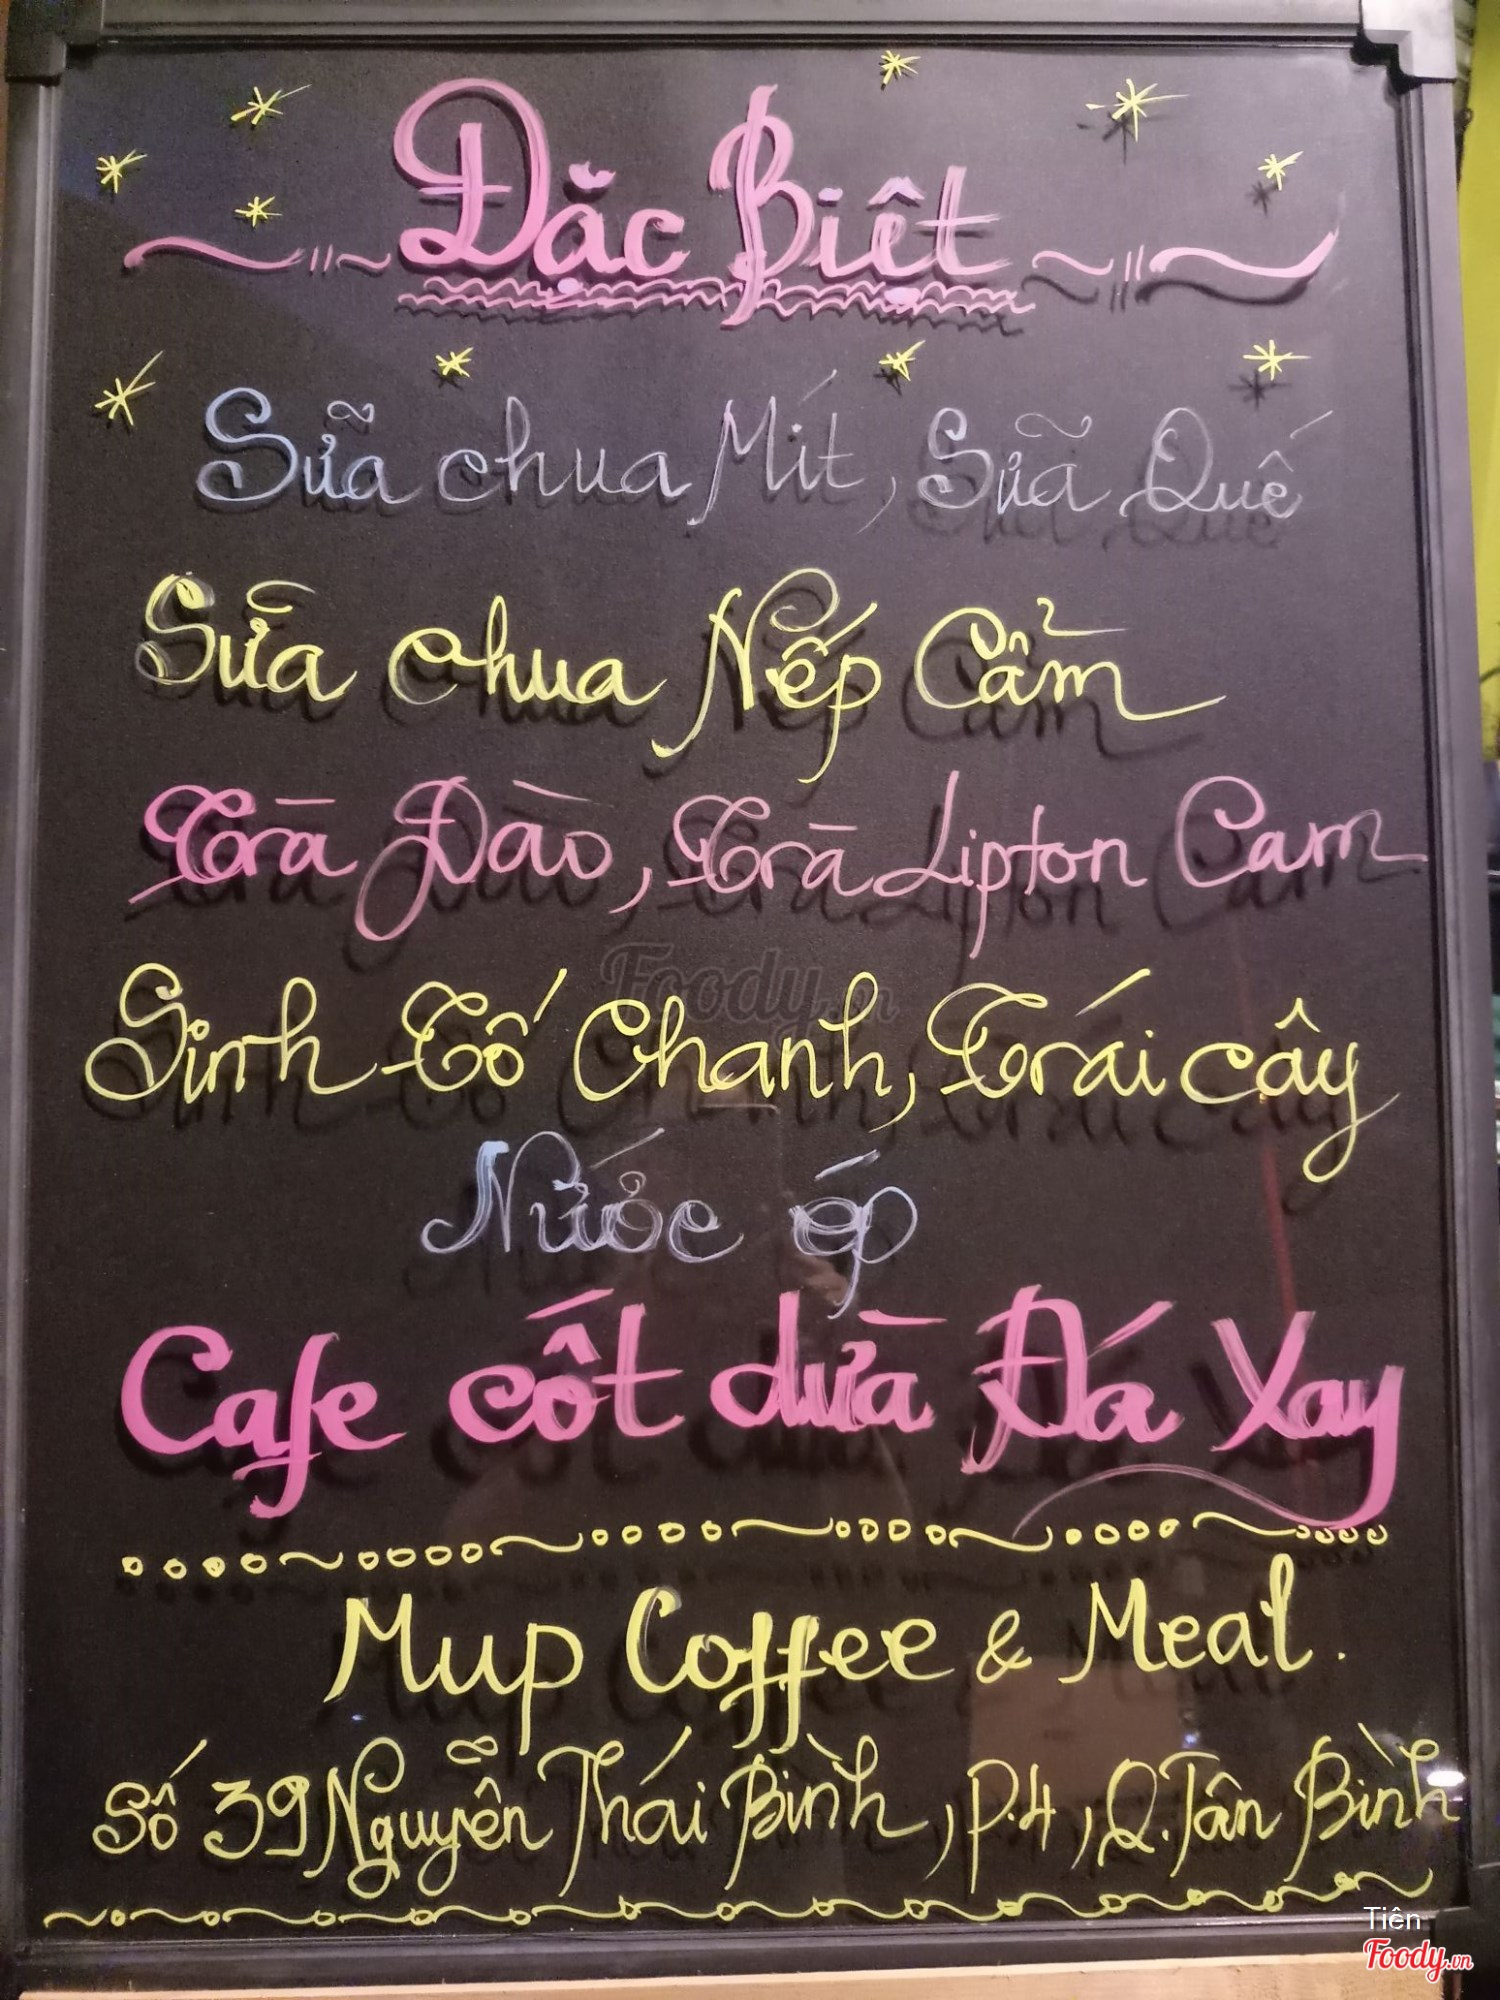 Đặc Biệt
Sữa chua Mít, Sữa Quế
Sữa chua Nếp Cẩm
Trà Đào, Trà Lipton Cam
Sinh Tố Chanh, Trái cây
Foody.vn
Nước ép
Cafe cốt dừa Đá Xay
Mup Coffee & Meal.
Số 39 Nguyễn Thái Bình, P.4, Q.Tân Bình
Tiên
Foody.vn